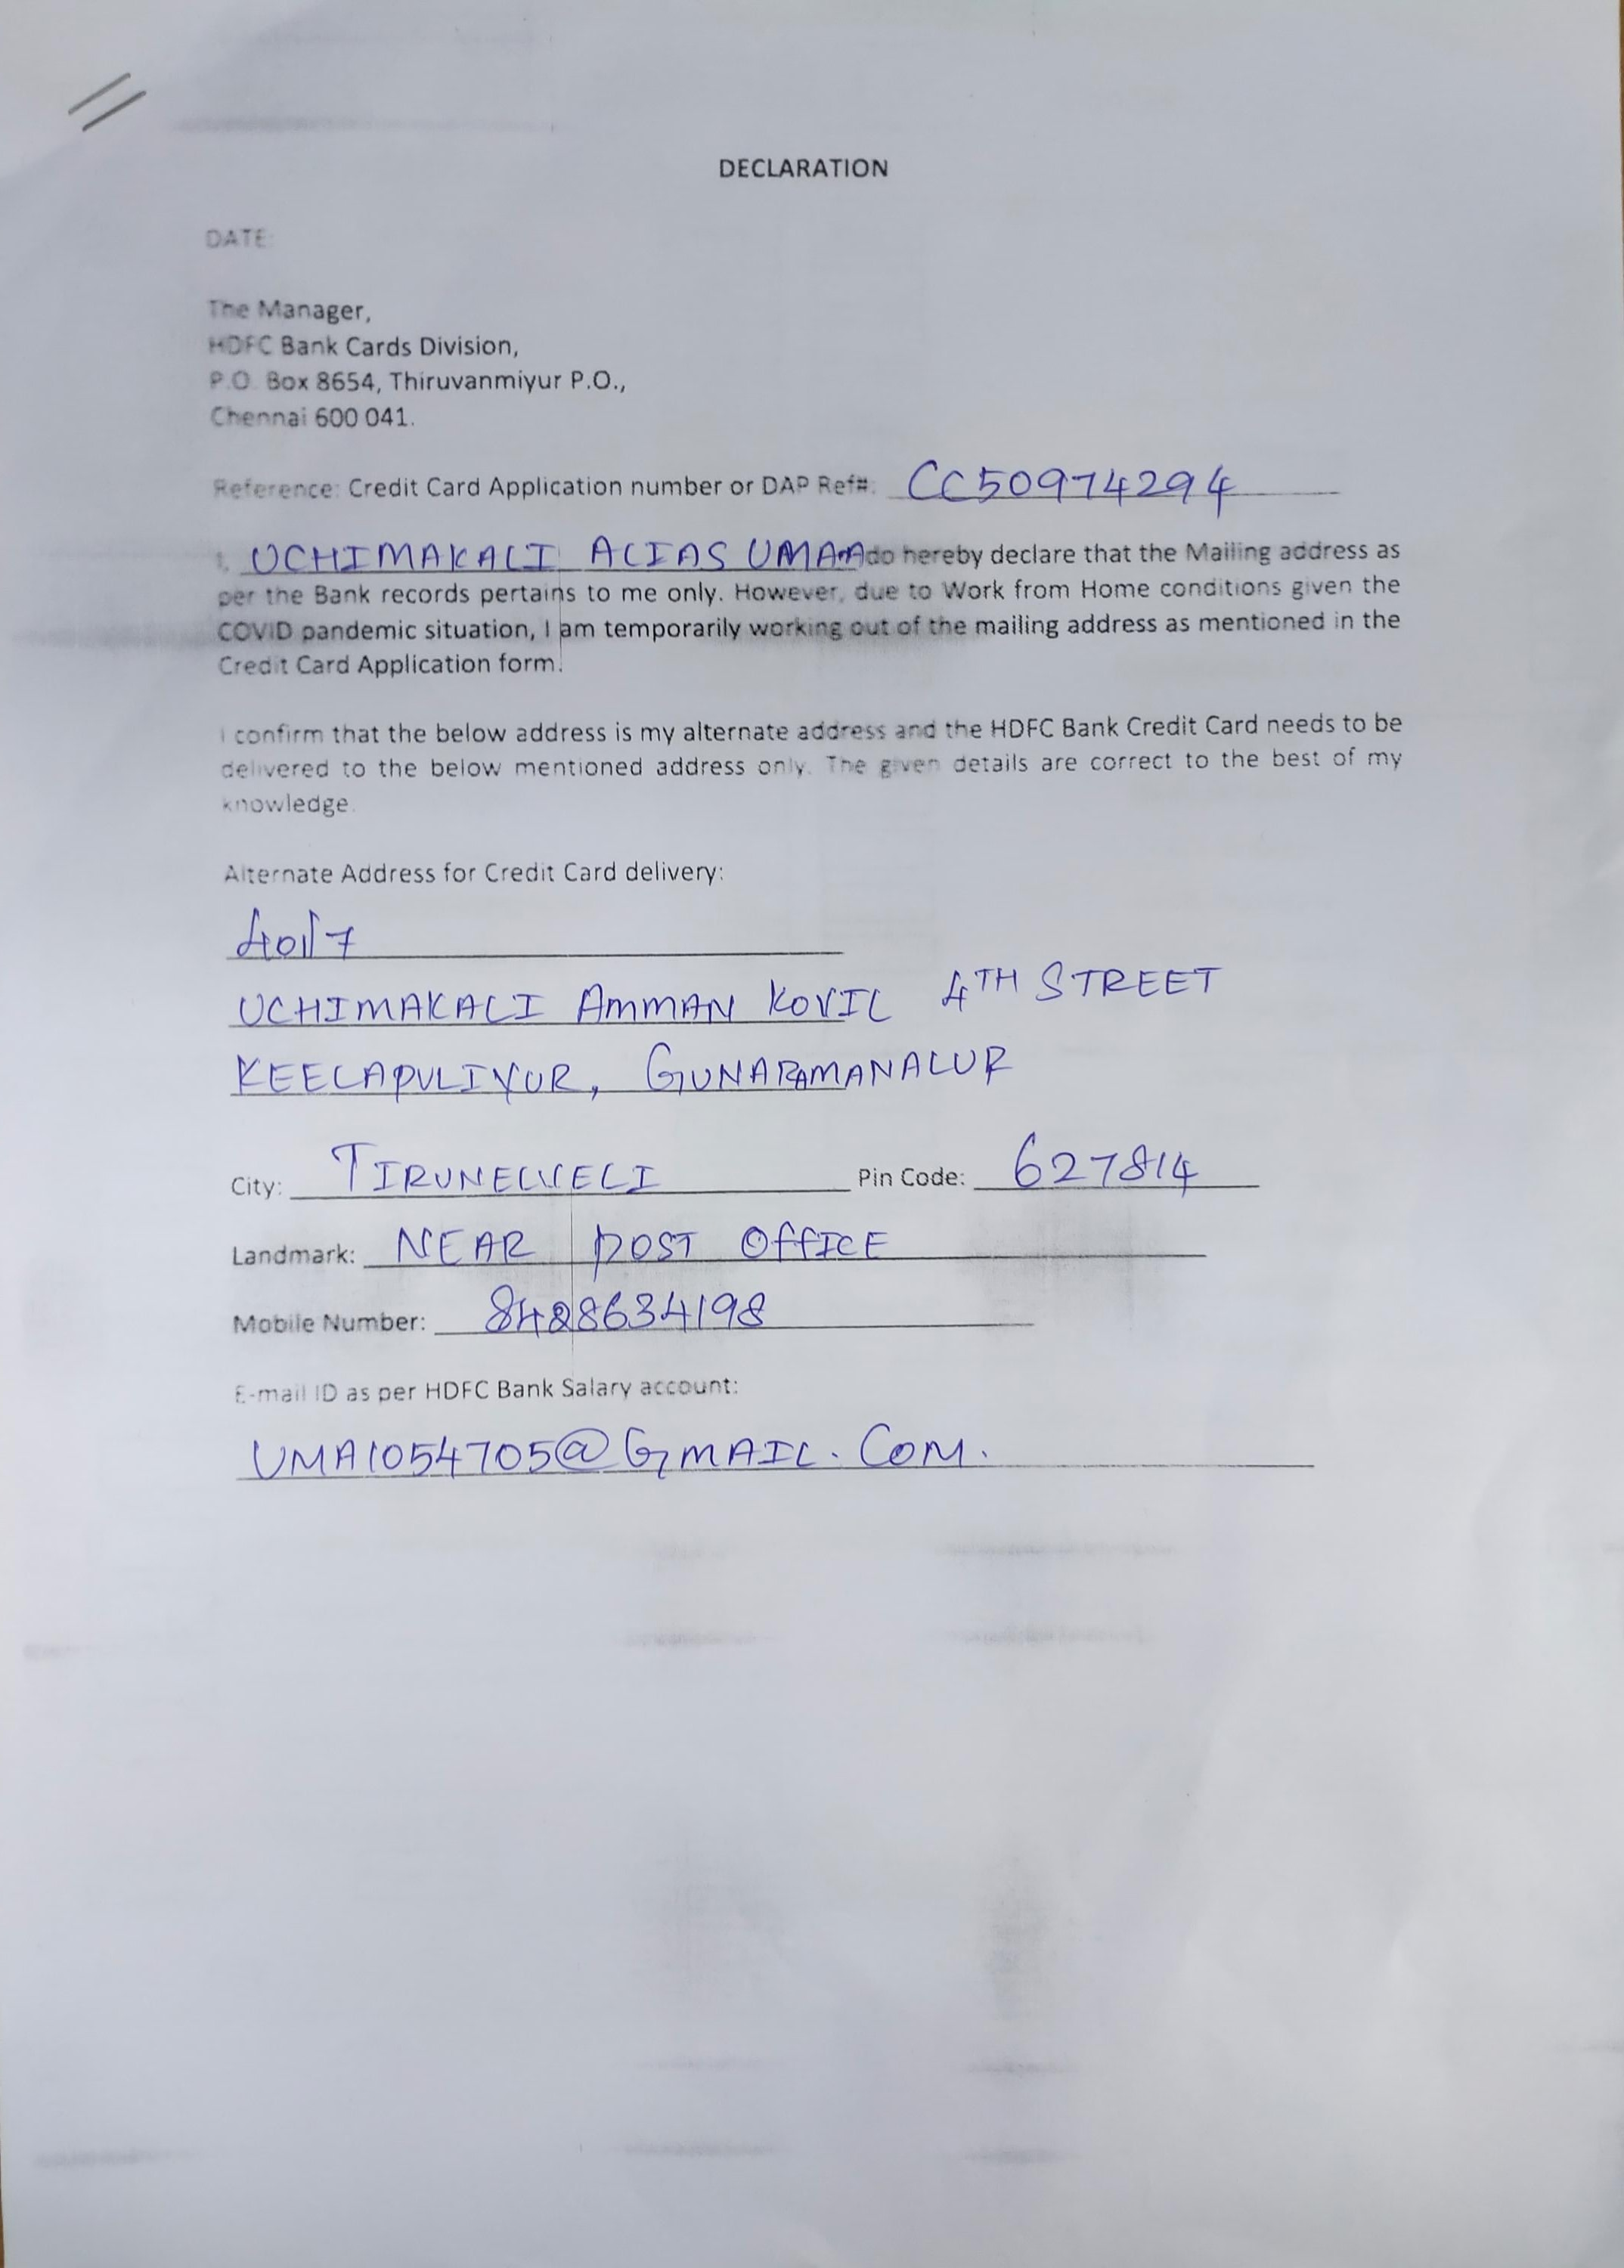 DECLARATION
DATE:
The Manager,
HDFC Bank Cards Division,
P.O. Box 8654, Thiruvanmiyur P.O.,
Chennai 600 041.
Reference: Credit Card Application number or DAP Ref#: CC50974294
I, UCHIMAKALI ALIAS UMA do hereby declare that the Mailing address as
per the Bank records pertains to me only. However, due to Work from Home conditions given the
COVID pandemic situation, I am temporarily working out of the mailing address as mentioned in the
Credit Card Application form.
I confirm that the below address is my alternate address and the HDFC Bank Credit Card needs to be
delivered to the below mentioned address only. The given details are correct to the best of my
knowledge.
Alternate Address for Credit Card delivery:
UCHIMAKALI AMMAN KOVIL 4TH STREET
KEELAPULIYUR, GUNARAMANALUR
City: TIRUNELVELI Pin Code: 627814
Landmark: NEAR POST OFFICE
Mobile Number: 8428634198
E-mail ID as per HDFC Bank Salary account:
UMA1054705@GMAIL.COM.